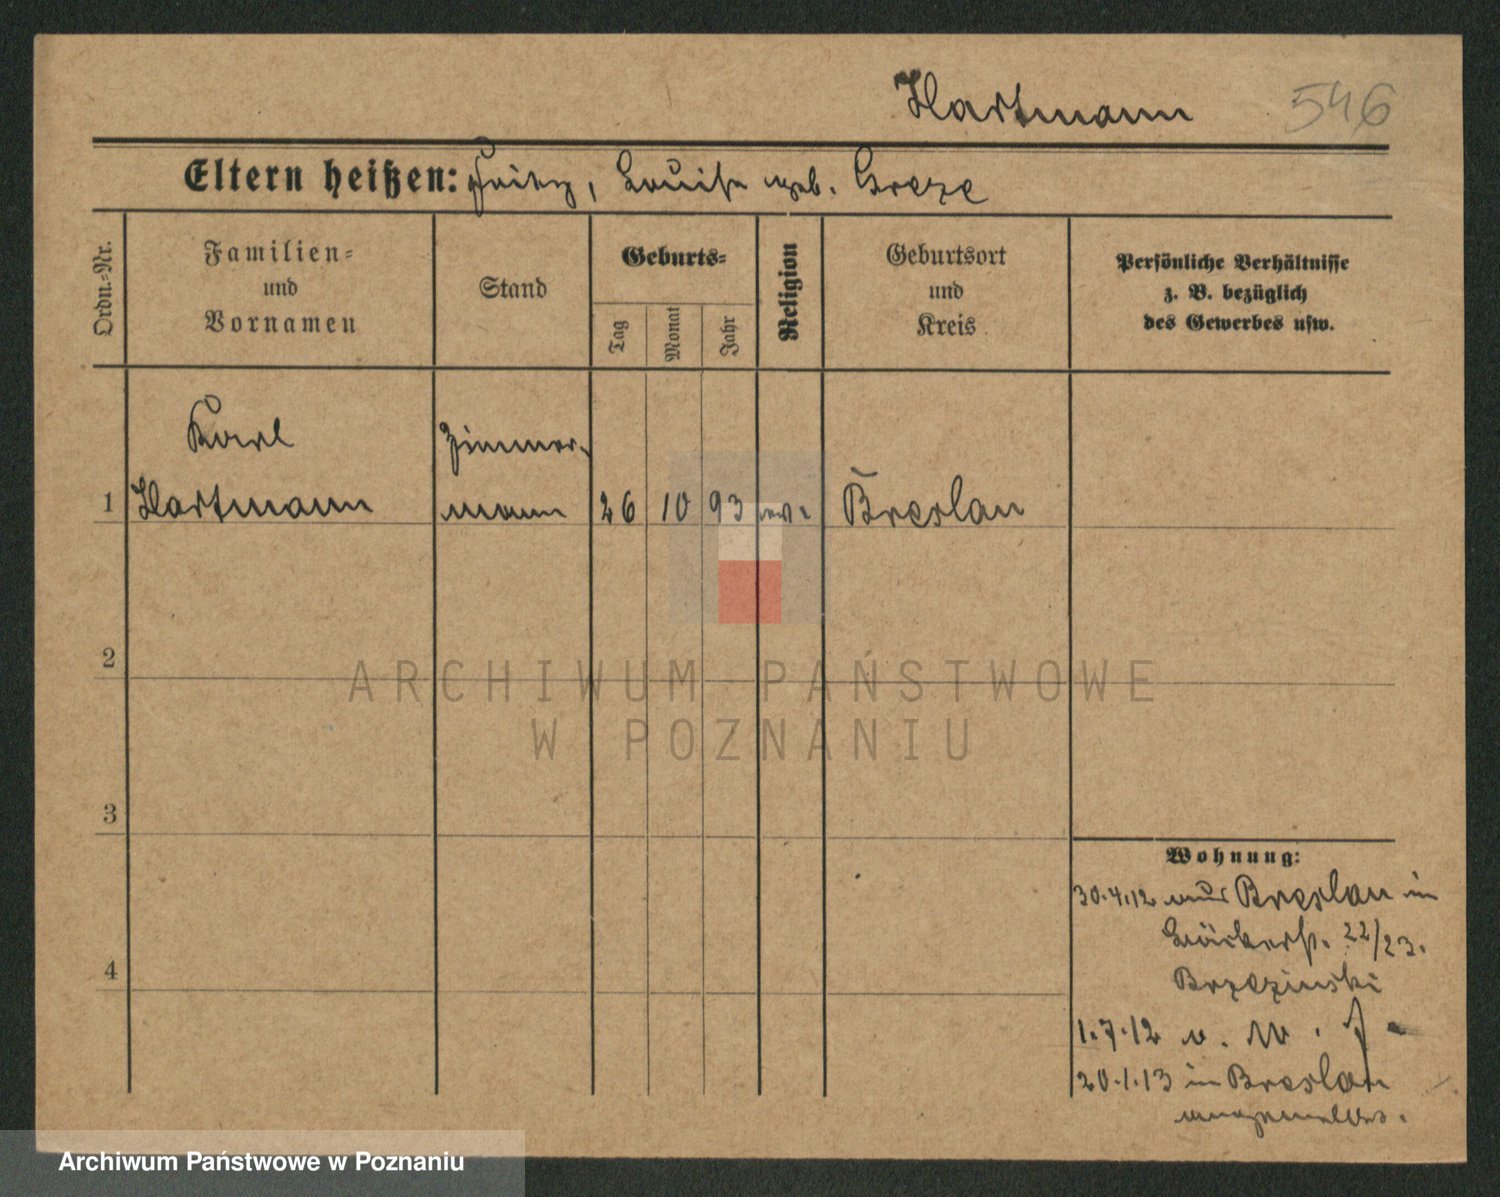 Hartmann 546
Eltern heißen: Fritz, Louise geb.
Ordn.-Nr.
Familien-
und
Vornamen
Stand
Geburts-
Tag
Monat
Jahr
Religion
Geburtsort
und
Kreis
Persönliche Verhältnisse
z. B. bezüglich
des Gewerbes usw.
Karl Zimmer-
1 Hartmann mann 26 10 93 ev. Breslau
2
3
4
Wohnung:
30.4.12 aus Breslau in
22/23.
Brzezinski
1.7.12
20.1.13 in Breslau
angemeldet.
ARCHIWUM PAŃSTWOWE
W POZNANIU
Archiwum Państwowe w Poznaniu